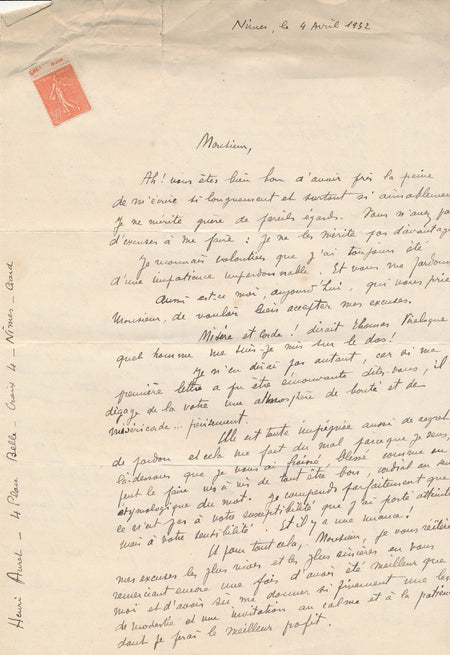 Nîmes, le 4 Avril 1932
Monsieur,
Ah! vous êtes bien bon d'avoir pris la peine
de m'écrire si longuement et surtout si aimablement
Je ne mérite guère de pareils égards. Vous n'avez pas
d'excuses à me faire : je ne les mérite pas davantage
Je reconnais volontiers que j'ai toujours été
d'une impatience impardonnable. Et vous me pardonnez
Aussi est-ce moi, aujourd'hui, qui vous prie
Monsieur, de vouloir bien accepter mes excuses.
Misère et corde! disait Thomas Vireloque
quel homme me suis-je mis sur le dos!
Je n'en dirai pas autant, car si ma
première lettre a pu être émouvante dites-vous, il
dégage de la vôtre une atmosphère de bonté et de
miséricorde...
Elle est toute imprégnée aussi de regret
de pardon et cela me fait du mal parce que je veux,
là-dessous que je vous ai froissé, blessé comme on
peut le faire vis à vis de tout être bon, cordial au sens
etymologique du mot. Je comprends parfaitement que
ce n'est pas à votre susceptibilité que j'ai porté atteinte
mais à votre sensibilité. Et il y a une nuance!
Monsieur, je vous réitère
mes excuses les plus vives et les plus sincères en vous
remerciant encore une fois d'avoir été meilleur que
moi et d'avoir su me donner si finement une leçon
de modestie et une invitation au calme et à la patience
dont je ferai le meilleur profit.
Henri Aurel - 4 Place Belle-Croix 4 - Nîmes - Gard